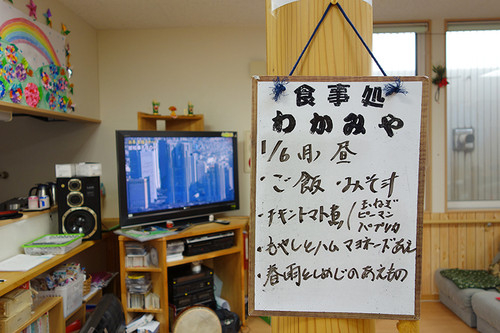 食事処
わかみや
1/6(月)昼
・ご飯・みそ汁
・チキントマト煮(玉ねぎ
ピーマン
パプリカ
・もやしとハムマヨネーズあえ
・春雨としめじのあえもの